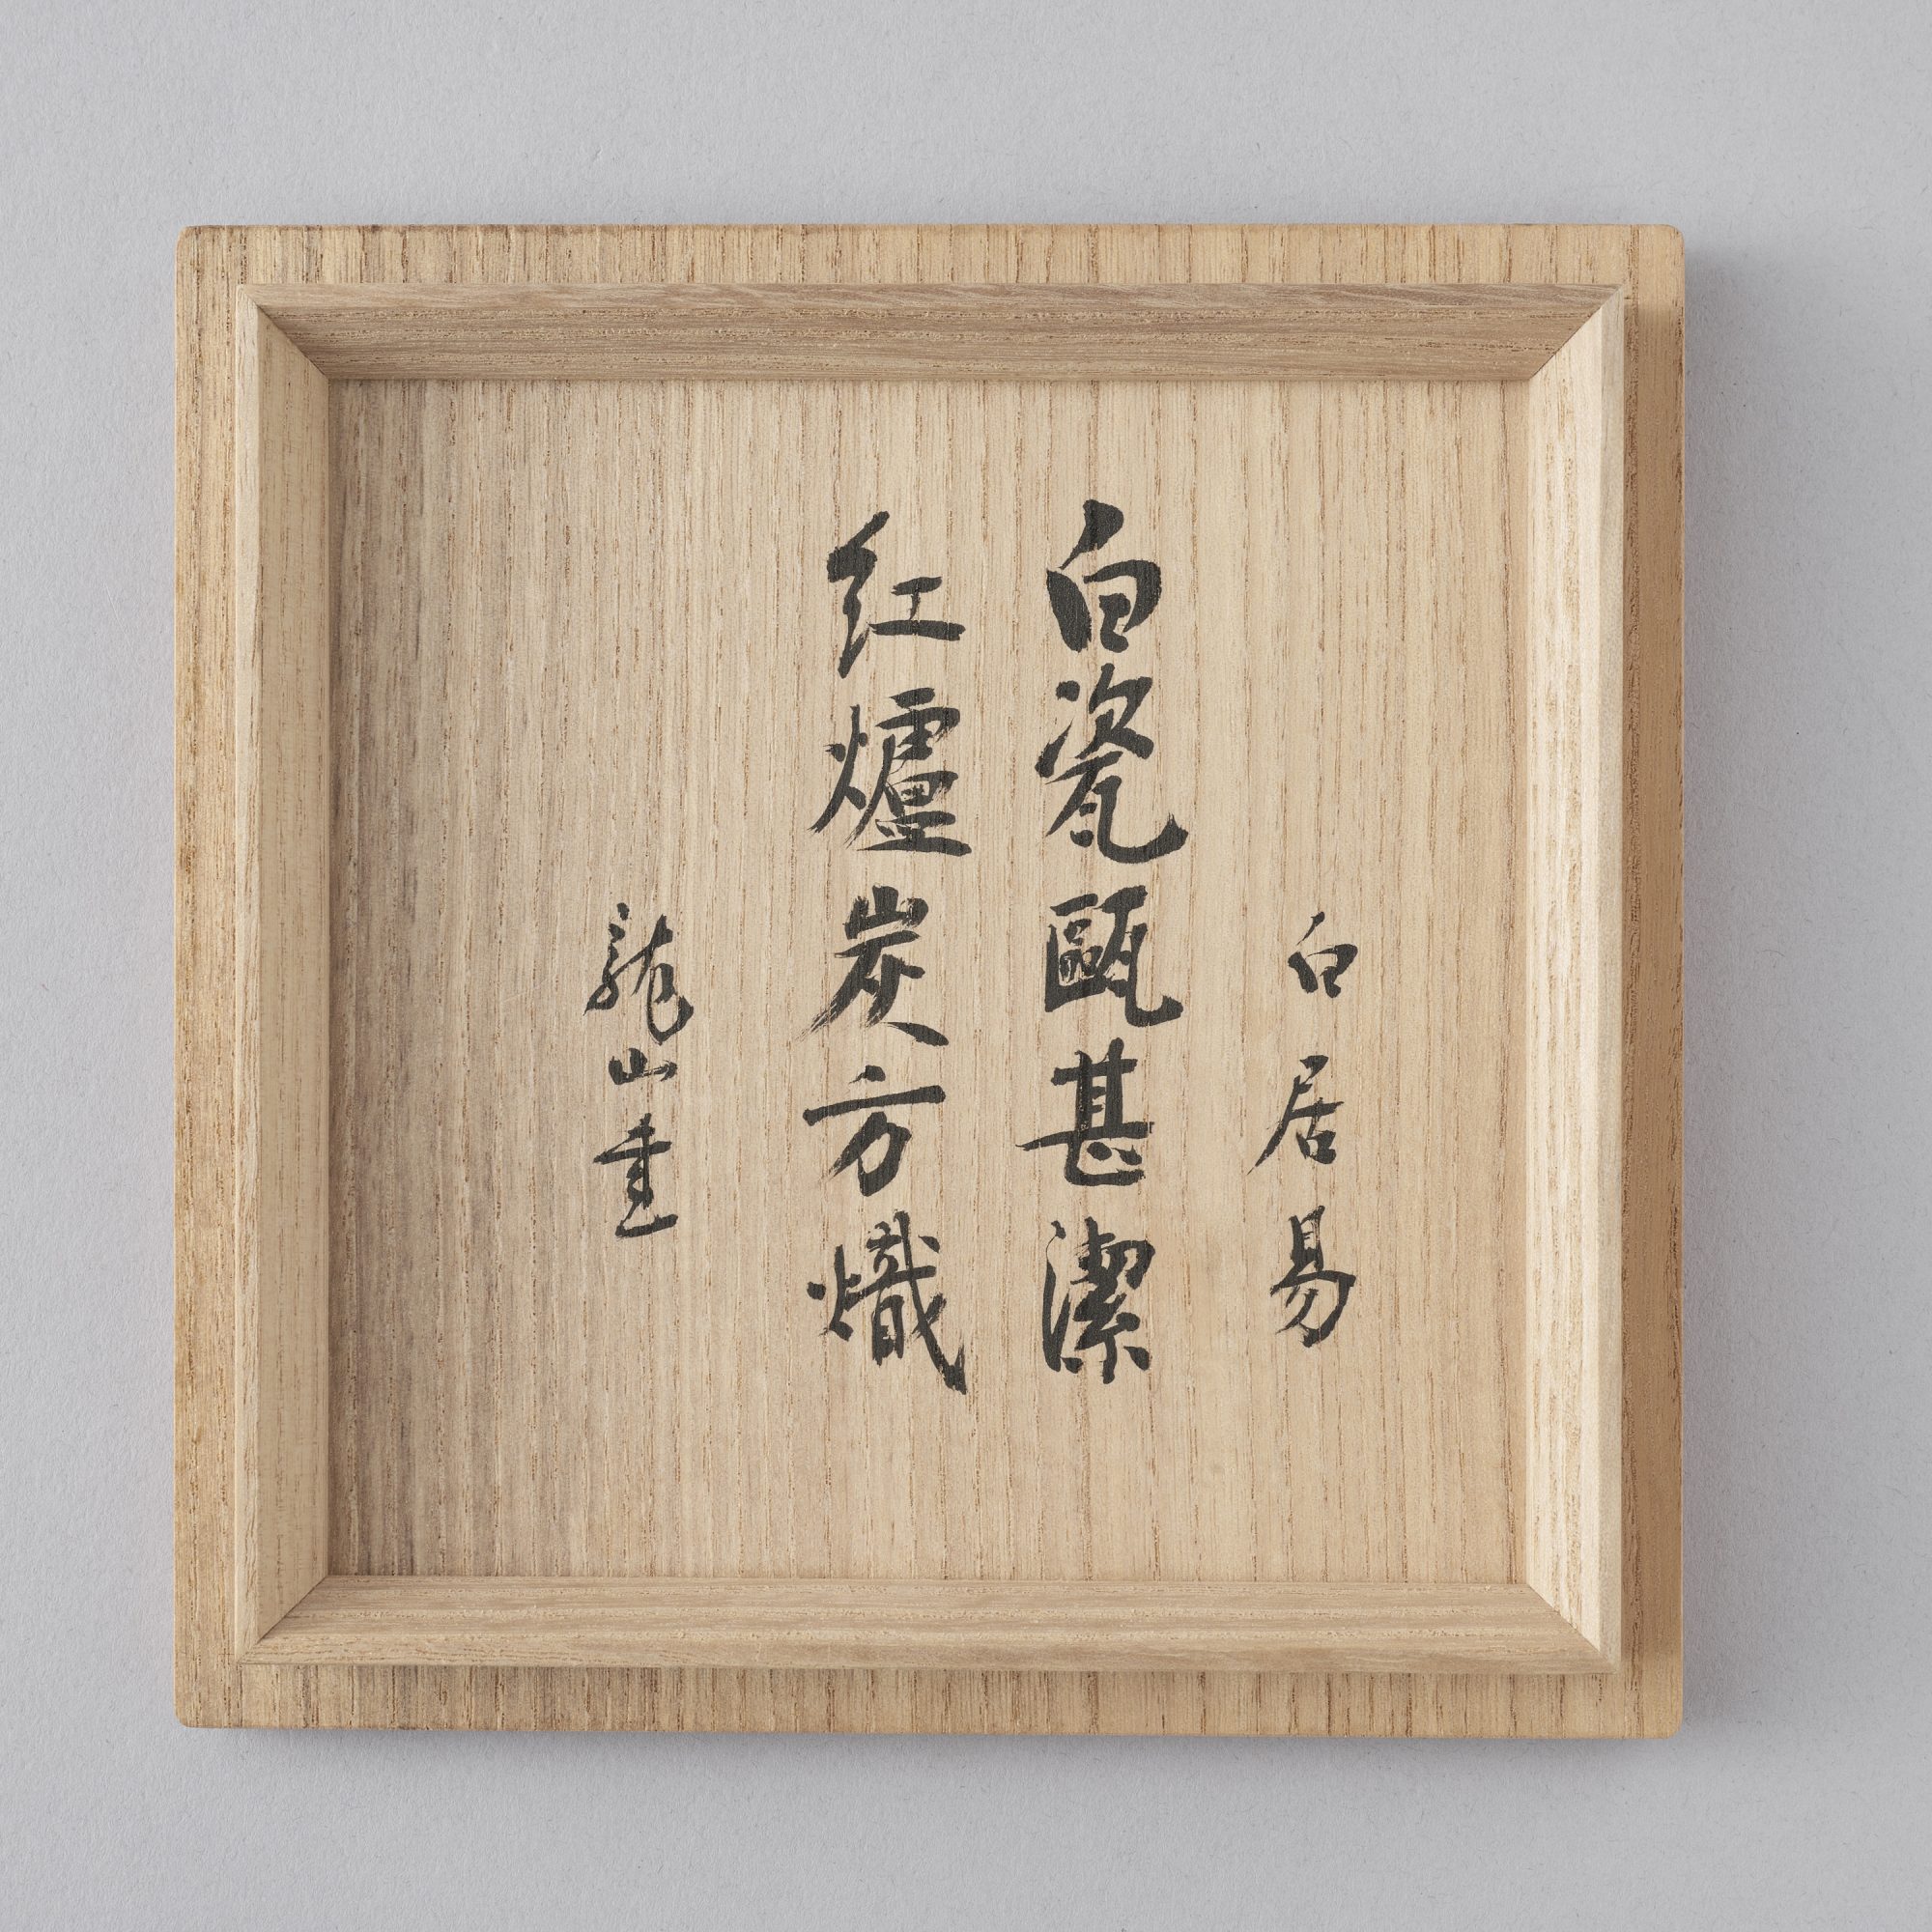 白居易
白瓷甌甚潔
紅爐炭方熾
龍山書